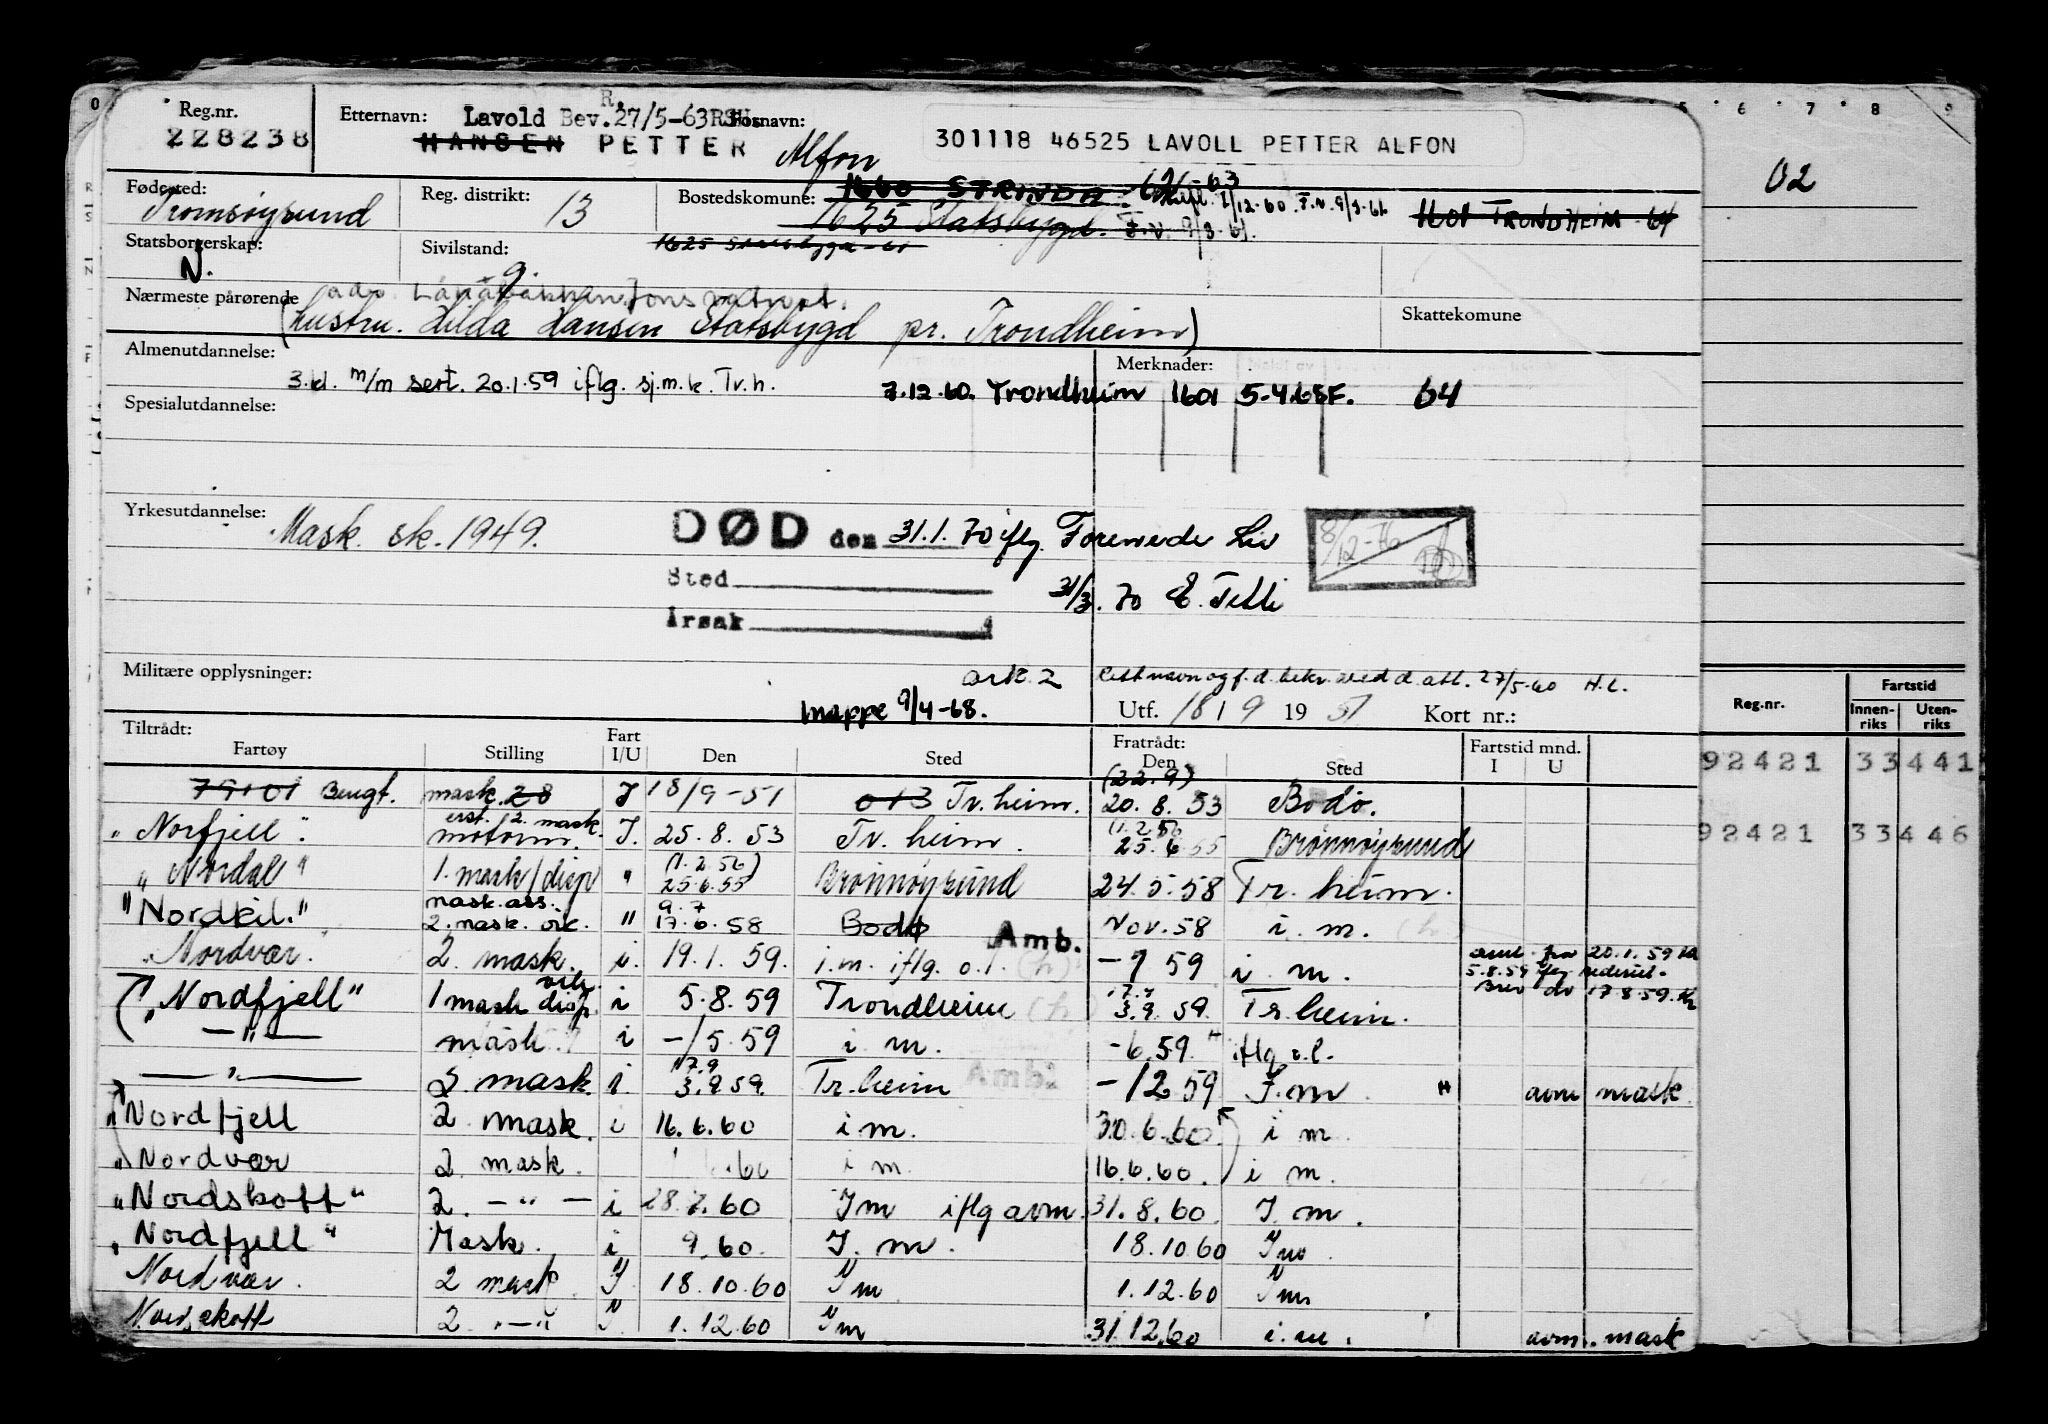 Reg.nr. Etternavn: Lavold Bev. 27/5-63 Fornavn:
228238 HANSEN PETTER Alfon 301118 46525 LAVOLL PETTER ALFON
02
Fødested: Tromsøysund Reg. distrikt: 13 Bostedskomune: 1660 STRINDA 1601 TRONDHEIM 64
1625 Statsbygd. F.V. 9/3-61.
Statsborgerskap: N. Sivilstand: g 1625
Nærmeste pårørende Skattekomune
(hustru. Hilda Hansen Statsbygd pr. Trondheim)
Almenutdannelse: Merknader:
3. kl. m/m sert. 20.1.59 iflg. sj.m.k. Tr.h. 7.12.60. Trondheim 1601 64
Spesialutdannelse:
Yrkesutdannelse: Mask. sk. 1949. DØD den 31.1.70 iflg. Forenede Liv
Sted 31/3.70
Årsak
Militære opplysninger: ark. 2 27/5-60 H.L.
mappe 9/4-68. Utf. 18/9 1951 Kort nr.:
Reg.nr. Fartstid
Innen-riks Uten-riks
Tiltrådt: Fratrådt: Fartstid mnd.
Fartøy Stilling Fart I/U Den Sted Den Sted I U
79101 Bengt. mask. 28 I 18/9-51 013 Tr.heim. (22.9) 20.8.53 Bodø.
92421 33441
"Norfjell". 2. mask. motorm. I. 25.8.53 Tr. heim. 25.6.55 Brønnøysund
92421 33446
"Nordal" 1. mask/disp " (1.2.56) 25.6.55 Brønnøysund 24.5.58 Tr. heim.
"Nordkil." mask.ass. 2. mask. vik. " 9.7 17.6.58 Bodø Nov.58 i. m.
Amb.
"Nordvær". 2. mask. i. 19.1.59. i.m. iflg. o.l. -7 59 i m. 20.1.59
5.8.59 17.8.59.
"Nordfjell" 1 mask disp. vik. i 5.8.59 Trondheim 17.9 3.9.59. Tr.heim.
—"— mask. i -/5.59 i m. -6.59. iflg o.l.
—"— 2 mask. i. 17.9 3.9.59. Tr.heim Amb2 -12 59 I. m avm mask.
"Nordfjell 2 mask. i 16.6.60 i m. 30.6.60. i m.
"Nordvær 2 mask. .60 i m 16.6.60. i m.
"Nordskott" 2. —"— i 28.7.60 I m iflg avm. 31.8.60. I. m.
"Nordfjell" Mask. i 9.60. I. m. 18.10 60 I m.
Nordvær. 2 mask. I 18.10.60 I m 1.12.60 I m
Nordskott 2. —"— I. 1.12.60 I m 31.12.60 i.m. avm. mask